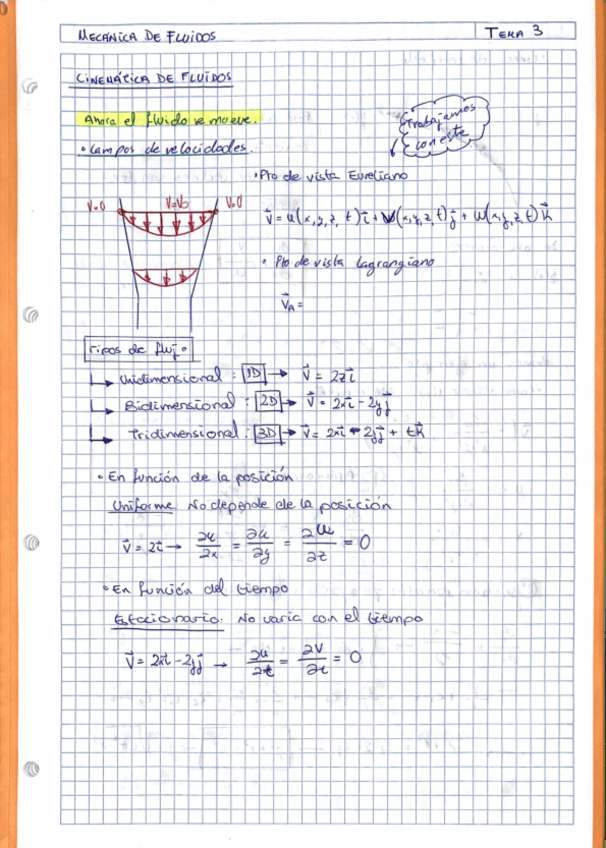 MECÁNICA DE FLUIDOS
TEMA 3
CINEMÁTICA DE FLUIDOS
Ahora el fluido se mueve.
Trabajamos
con este
• Campos de velocidades.
• Pto de vista Eureliano
V=0 V=V0 V=0
v⃗ = u(x,y,z,t)i⃗ + v(x,y,z,t)j⃗ + w(x,y,z,t)k⃗
• Pto de vista Lagrangiano
v⃗A =
Tipos de flujo
↳ Unidimensional : 1D → v⃗ = 2zi⃗
↳ Bidimensional : 2D → v⃗ = 2xi⃗ - 2yj⃗
↳ Tridimensional : 3D → v⃗ = 2xi⃗ - 2yj⃗ + tk⃗
• En función de la posición
Uniforme No depende de la posición
v⃗ = 2i⃗ → ∂u/∂x = ∂u/∂y = ∂u/∂z = 0
• En función del tiempo
Estacionario: No varia con el tiempo
v⃗ = 2xi⃗ - 2yj⃗ → ∂u/∂t = ∂v/∂t = 0